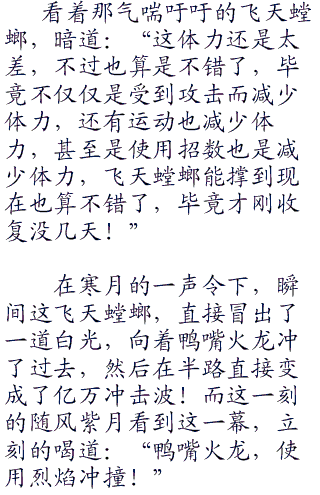 看着那气喘吁吁的飞天螳
螂，暗道：“这体力还是太
差，不过也算是不错了，毕
竟不仅仅是受到攻击而减少
体力，还有运动也减少体
力，甚至是使用招数也是减
少体力，飞天螳螂能撑到现
在也算不错了，毕竟才刚收
复没几天！”
在寒月的一声令下，瞬
间这飞天螳螂，直接冒出了
一道白光，向着鸭嘴火龙冲
了过去，然后在半路直接变
成了亿万冲击波！而这一刻
的随风紫月看到这一幕，立
刻的喝道：“鸭嘴火龙，使
用烈焰冲撞！”